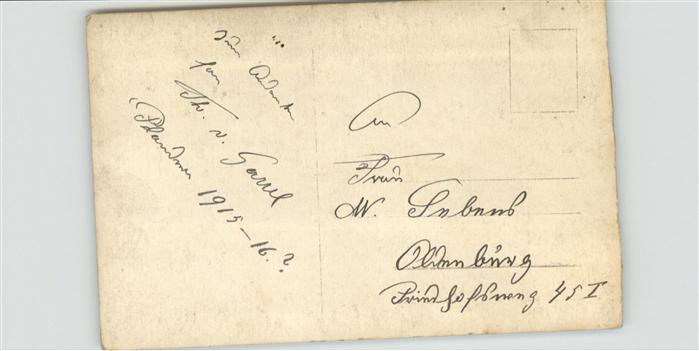 Zum Andenken
von
Th. v. Garrel
Flandern 1915–16.?
An
Frau
W. Sebens
Oldenburg
Friedhofsweg 45 I